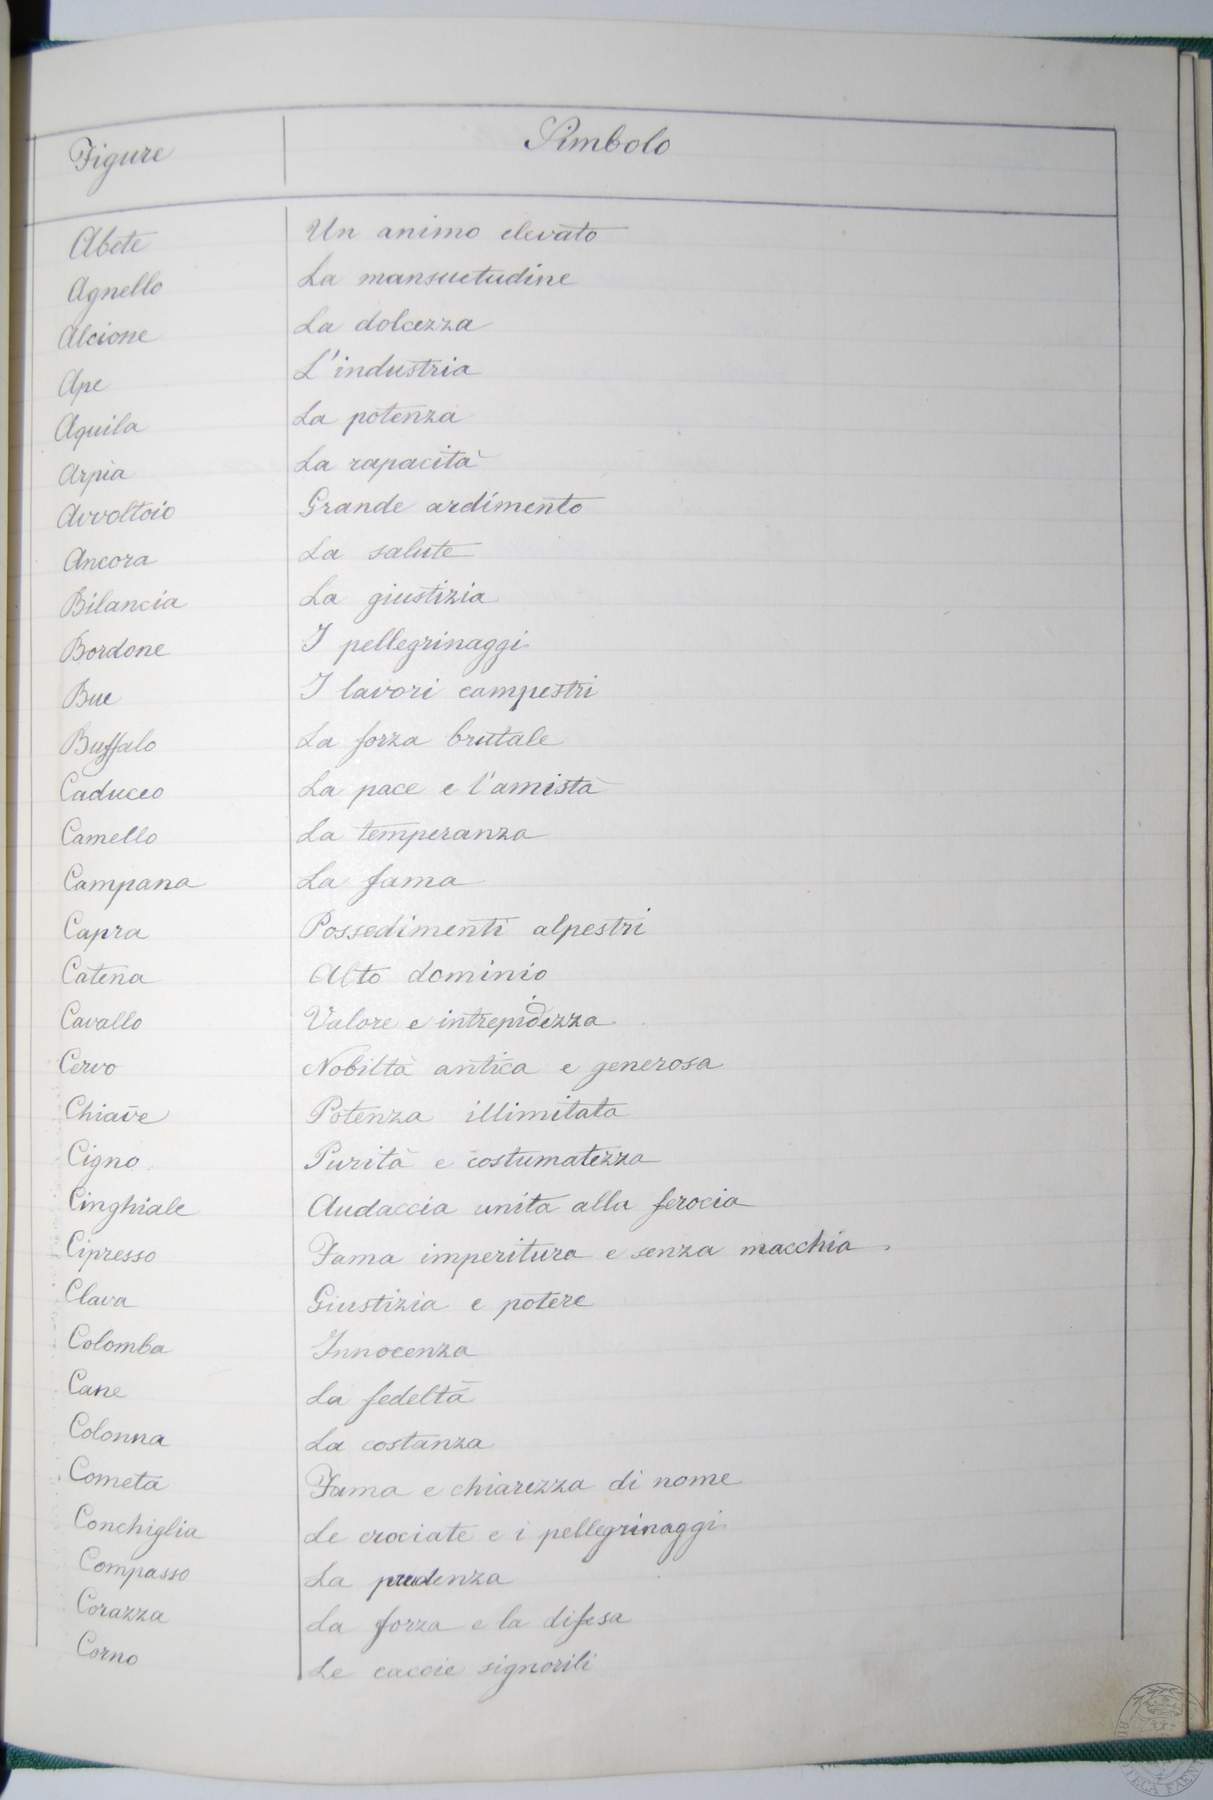 Figure Simbolo
Abete Un animo elevato
Agnello La mansuetudine
Alcione La dolcezza
Ape L'industria
Aquila La potenza
Arpia La rapacità
Avvoltoio Grande ardimento
Ancora La salute
Bilancia La giustizia
Bordone I pellegrinaggi
Bue I lavori campestri
Buffalo La forza brutale
Caduceo La pace e l'amistà
Camello La temperanza
Campana La fama
Capra Possedimenti alpestri
Catena Alto dominio
Cavallo Valore e intrepidezza
Cervo Nobiltà antica e generosa
Chiave Potenza illimitata
Cigno Purità e costumatezza
Cinghiale Audaccia unita alla ferocia
Cipresso Fama imperitura e senza macchia
Clava Giustizia e potere
Colomba Innocenza
Cane La fedeltà
Colonna La costanza
Cometa Fama e chiarezza di nome
Conchiglia Le crociate e i pellegrinaggi
Compasso La prudenza
Corazza La forza e la difesa
Corno Le caccie signorili